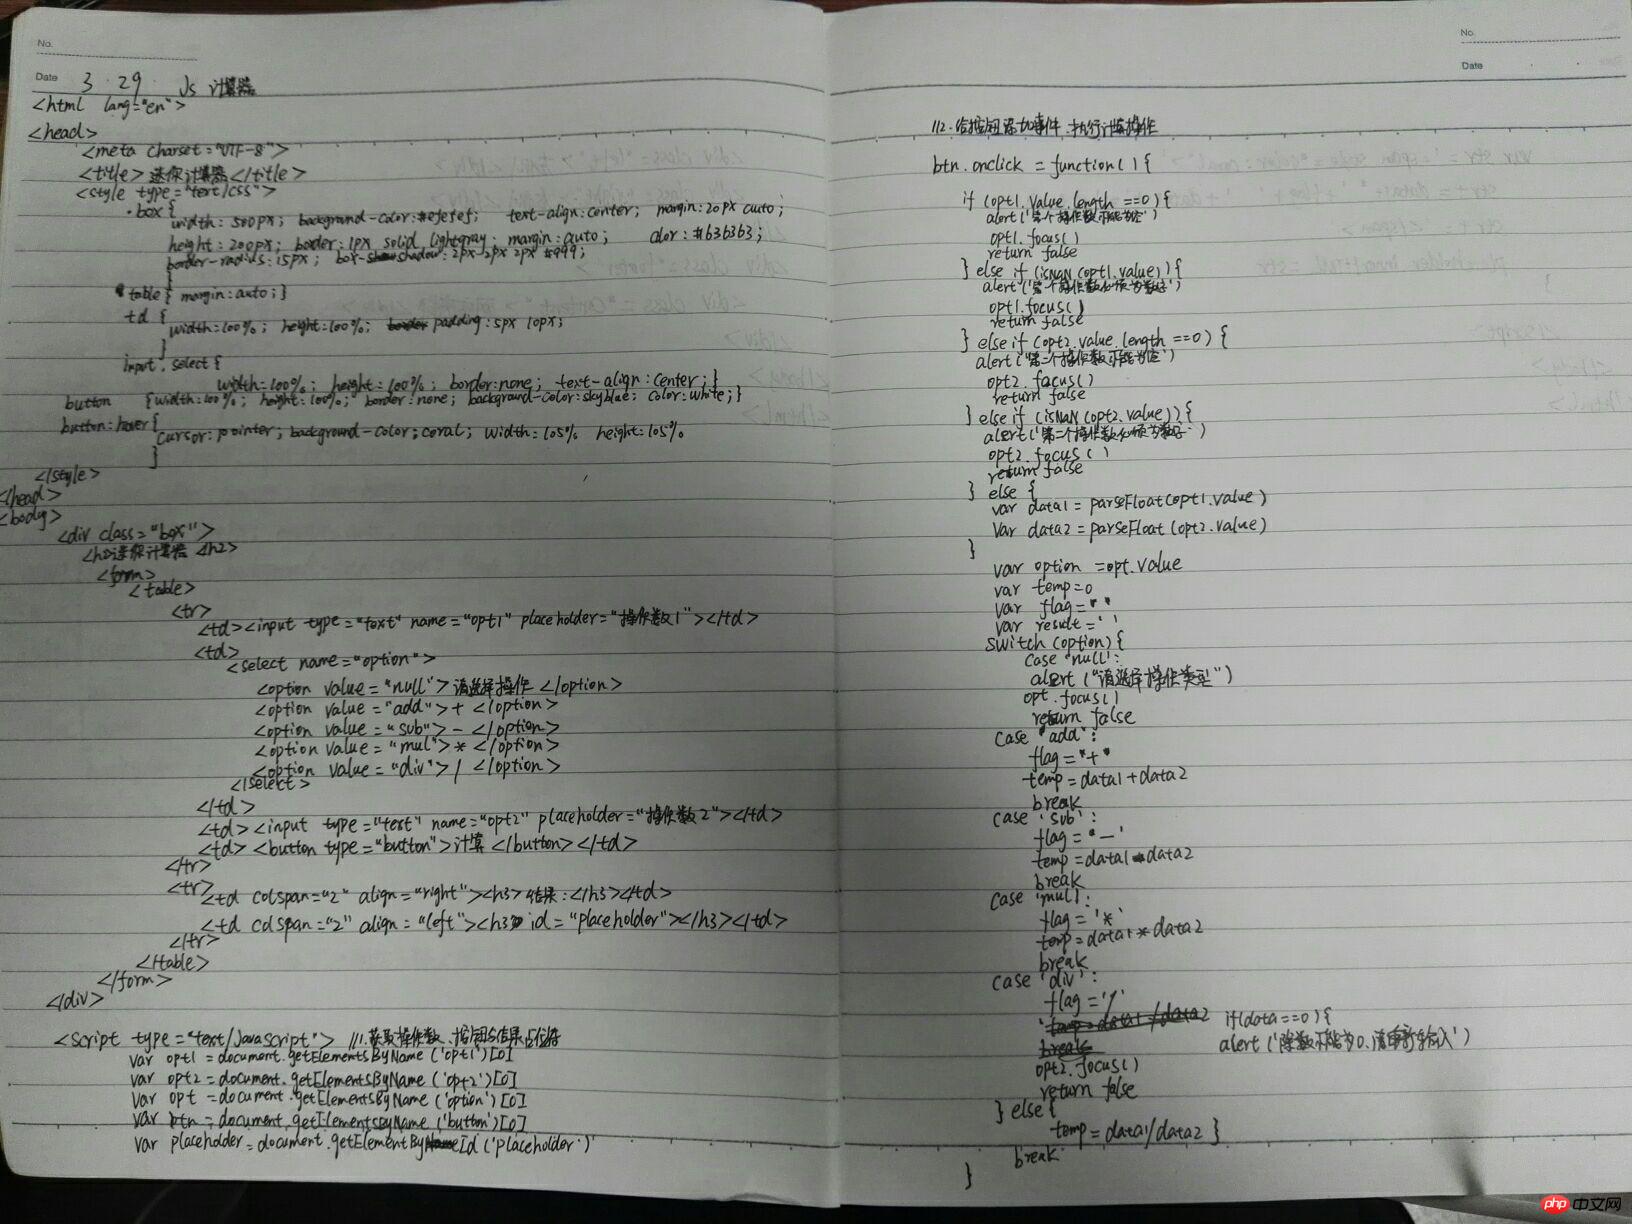 No.
Date 3 . 29 Js 计算器
<html lang="en">
<head>
<meta charset="UTF-8">
<title>迷你计算器</title>
<style type="text/css">
.box{
width: 500px; background-color:#efefef; text-align:center; margin:20px auto;
height:200px; border:1px solid lightgray; margin:auto; color:#636363;
border-radius:15px; box-shadow:2px 2px 2px #999;
}
table{ margin:auto;}
td {
width:100%; height:100%; padding:5px 10px;
}
input, select{
width:100%; height:100%; border:none; text-align:center;}
button {width:100%; height:100%; border:none; background-color:skyblue; color:white;}
button:hover{
cursor:pointer; background-color:coral; width:105% height:105%
}
</style>
</head>
<body>
<div class="box">
<h2>迷你计算器 </h2>
<form>
<table>
<tr>
<td><input type="text" name="opt1" placeholder="操作数1"></td>
<td>
<select name="option">
<option value="null">请选择操作</option>
<option value="add">+ </option>
<option value="sub">- </option>
<option value="mul">* </option>
<option value="div">/ </option>
</select>
</td>
<td><input type="text" name="opt2" placeholder="操作数2"></td>
<td> <button type="button">计算</button></td>
</tr>
<tr>
<td colspan="2" align="right"><h3>结果:</h3></td>
<td colspan="2" align="left"><h3 id="placeholder"></h3></td>
</tr>
</table>
</form>
</div>
<script type="text/JavaScript"> //1.获取操作数、按钮与结果占位符
var opt1 = document.getElementsByName('opt1')[0]
var opt2 = document.getElementsByName('opt2')[0]
var opt = document.getElementsByName('option')[0]
var btn = document.getElementsByName('button')[0]
var placeholder = document.getElementById('placeholder')
No.
Date
//2.给按钮添加事件,执行计算操作
btn.onclick = function(){
if (opt1.value.length ==0){
alert('第一个操作数不能为空')
opt1.focus()
return false
} else if (isNaN(opt1.value)){
alert('第一个操作数必须为数字')
opt1.focus()
return false
} else if (opt2.value.length ==0){
alert('第二个操作数不能为空')
opt2.focus()
return false
} else if (isNaN(opt2.value)){
alert('第二个操作数必须为数字')
opt2.focus()
return false
} else {
var data1 = parseFloat(opt1.value)
var data2 = parseFloat(opt2.value)
}
var option =opt.value
var temp=0
var flag=" "
var result=' '
switch (option){
case 'null':
alert("请选择操作类型")
opt.focus()
return false
case 'add':
flag="+"
temp=data1+data2
break
case 'sub':
flag="-"
temp=data1-data2
break
case 'mul':
flag='*'
temp=data1*data2
break
case 'div':
flag='/'
if(data==0){
alert('除数不能为0,请重新输入')
opt2.focus()
return false
} else{
temp=data1/data2 }
break
}
php 中文网